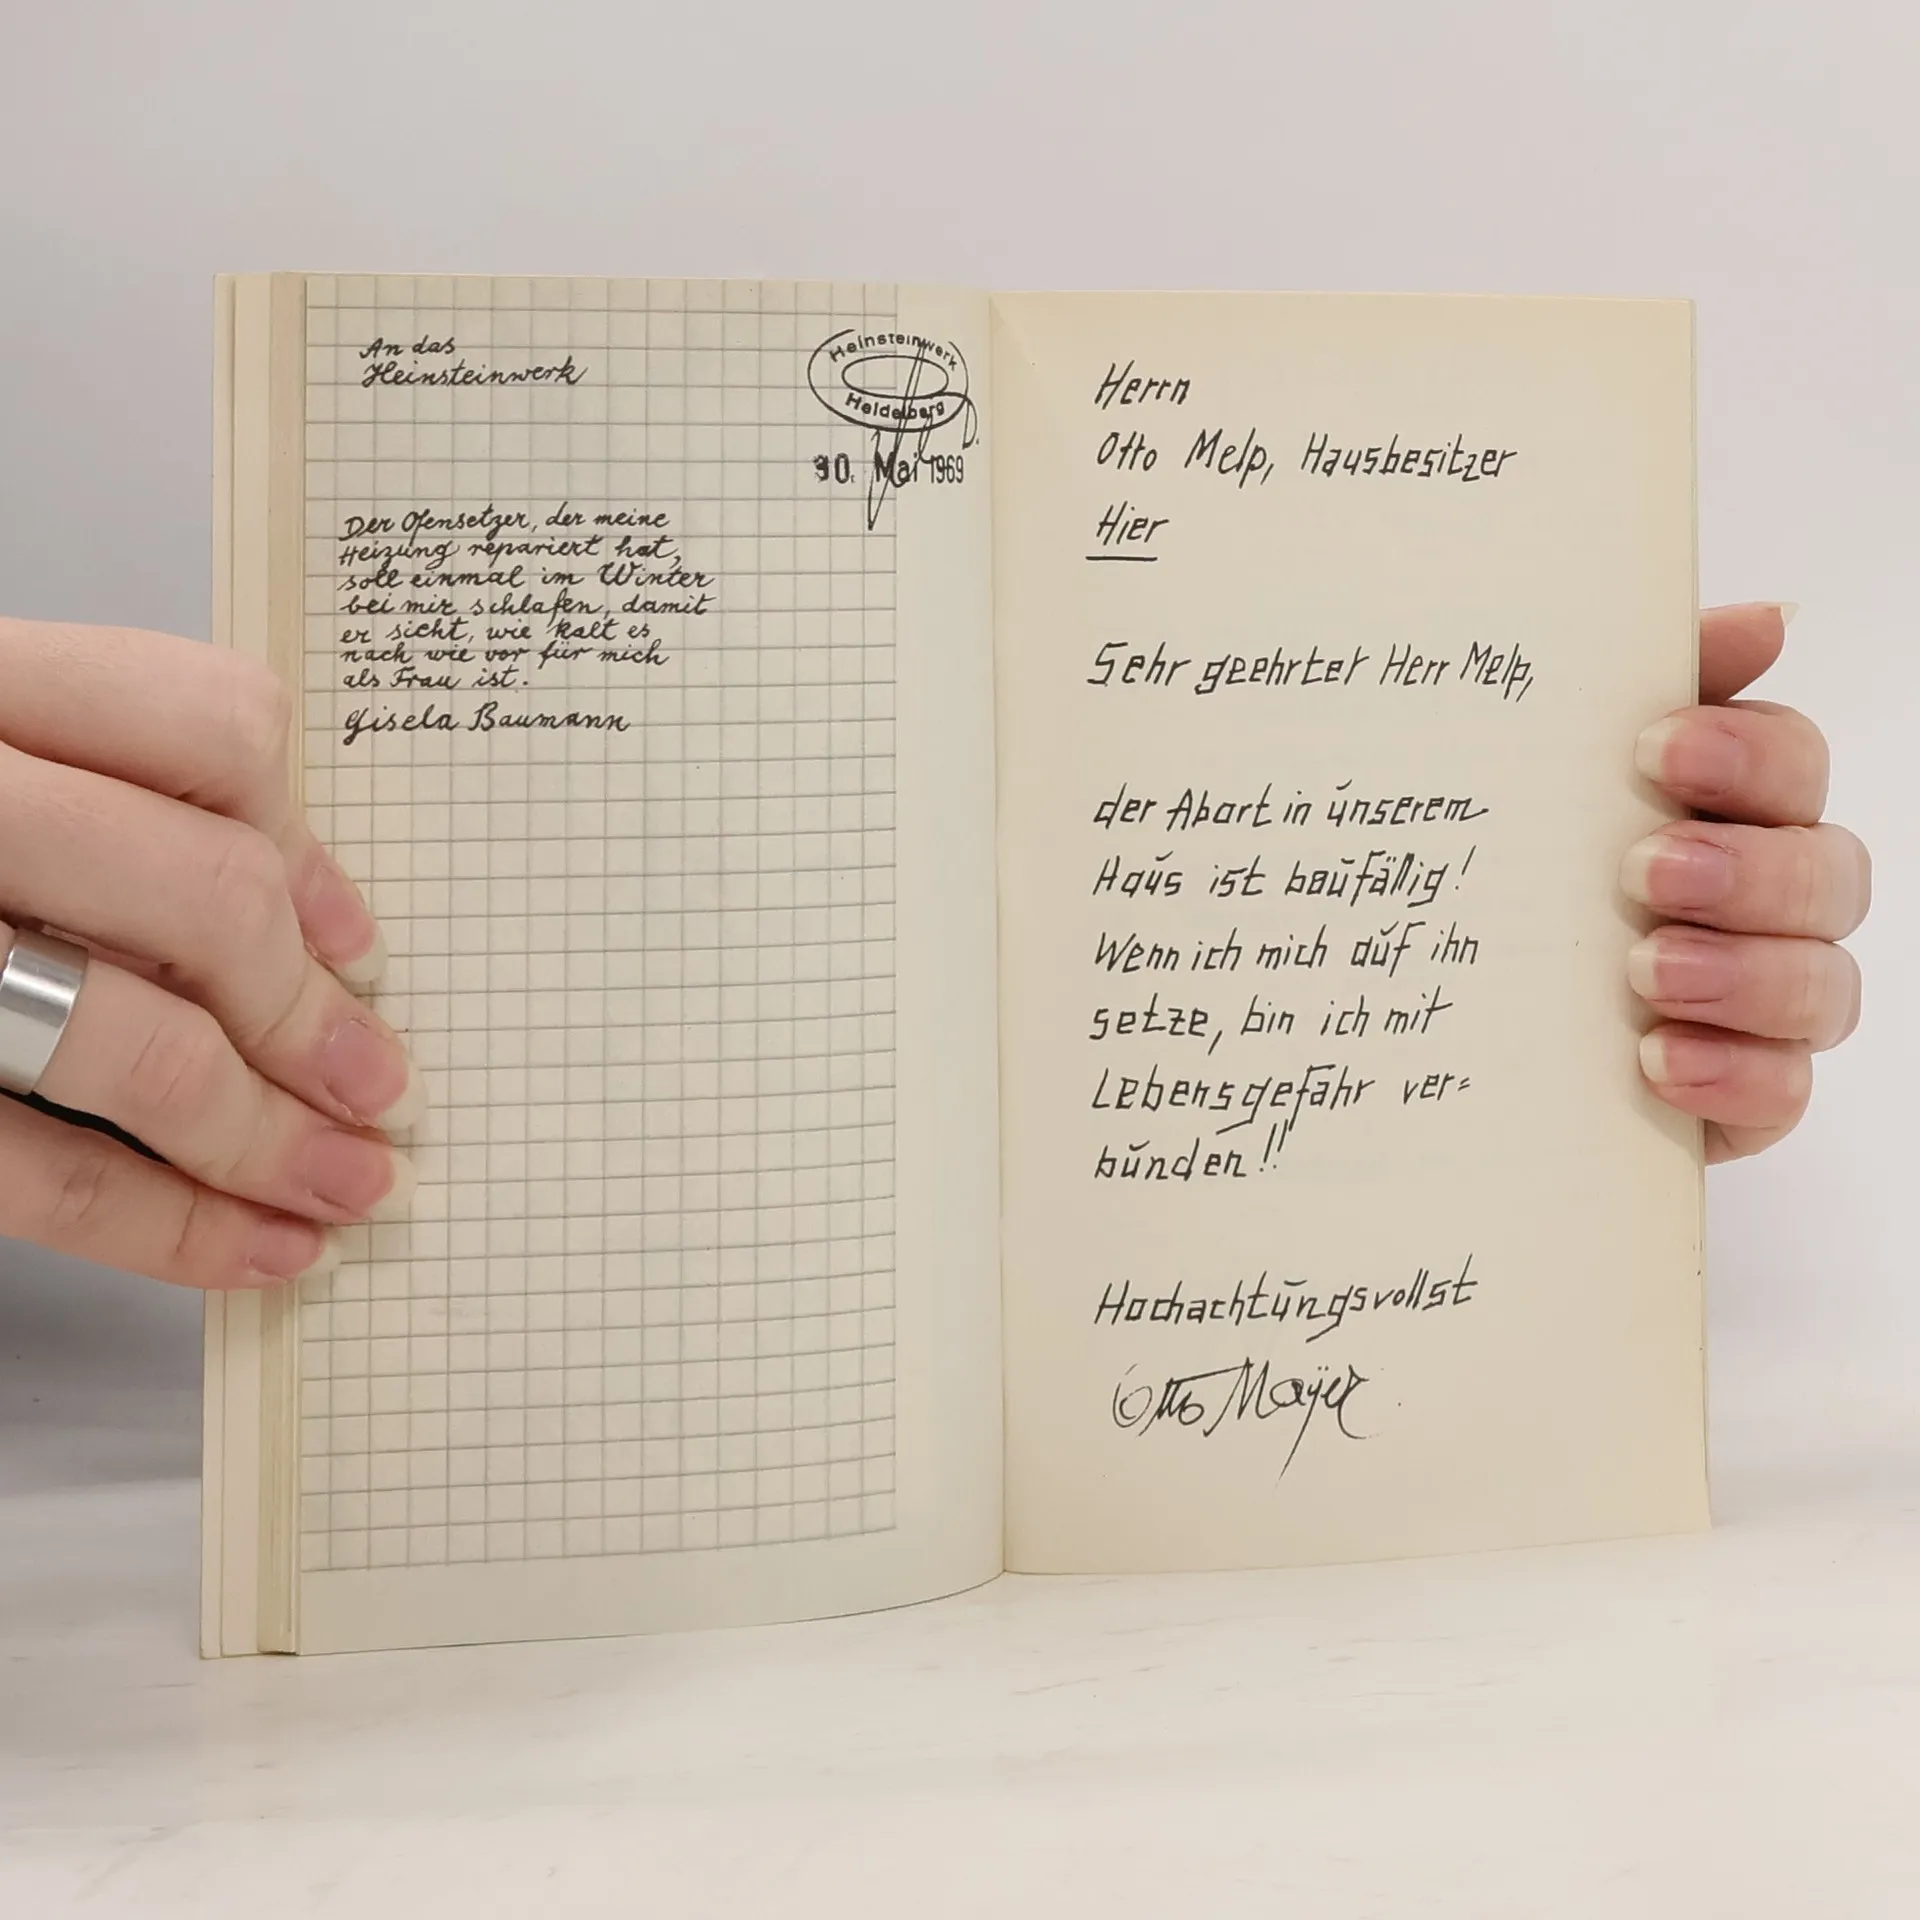 An das
Heinsteinwerk
Heinsteinwerk
Heidelberg
30. Mai 1969
Der Ofensetzer, der meine
Heizung repariert hat,
soll einmal im Winter
bei mir schlafen, damit
er sieht, wie kalt es
nach wie vor für mich
als Frau ist.
Gisela Baumann
Herrn
Otto Melp, Hausbesitzer
Hier
Sehr geehrter Herr Melp,
der Abort in unserem
Haus ist baufällig!
Wenn ich mich auf ihn
setze, bin ich mit
Lebensgefahr ver=
bunden!!
Hochachtungsvollst
Otto Mayer